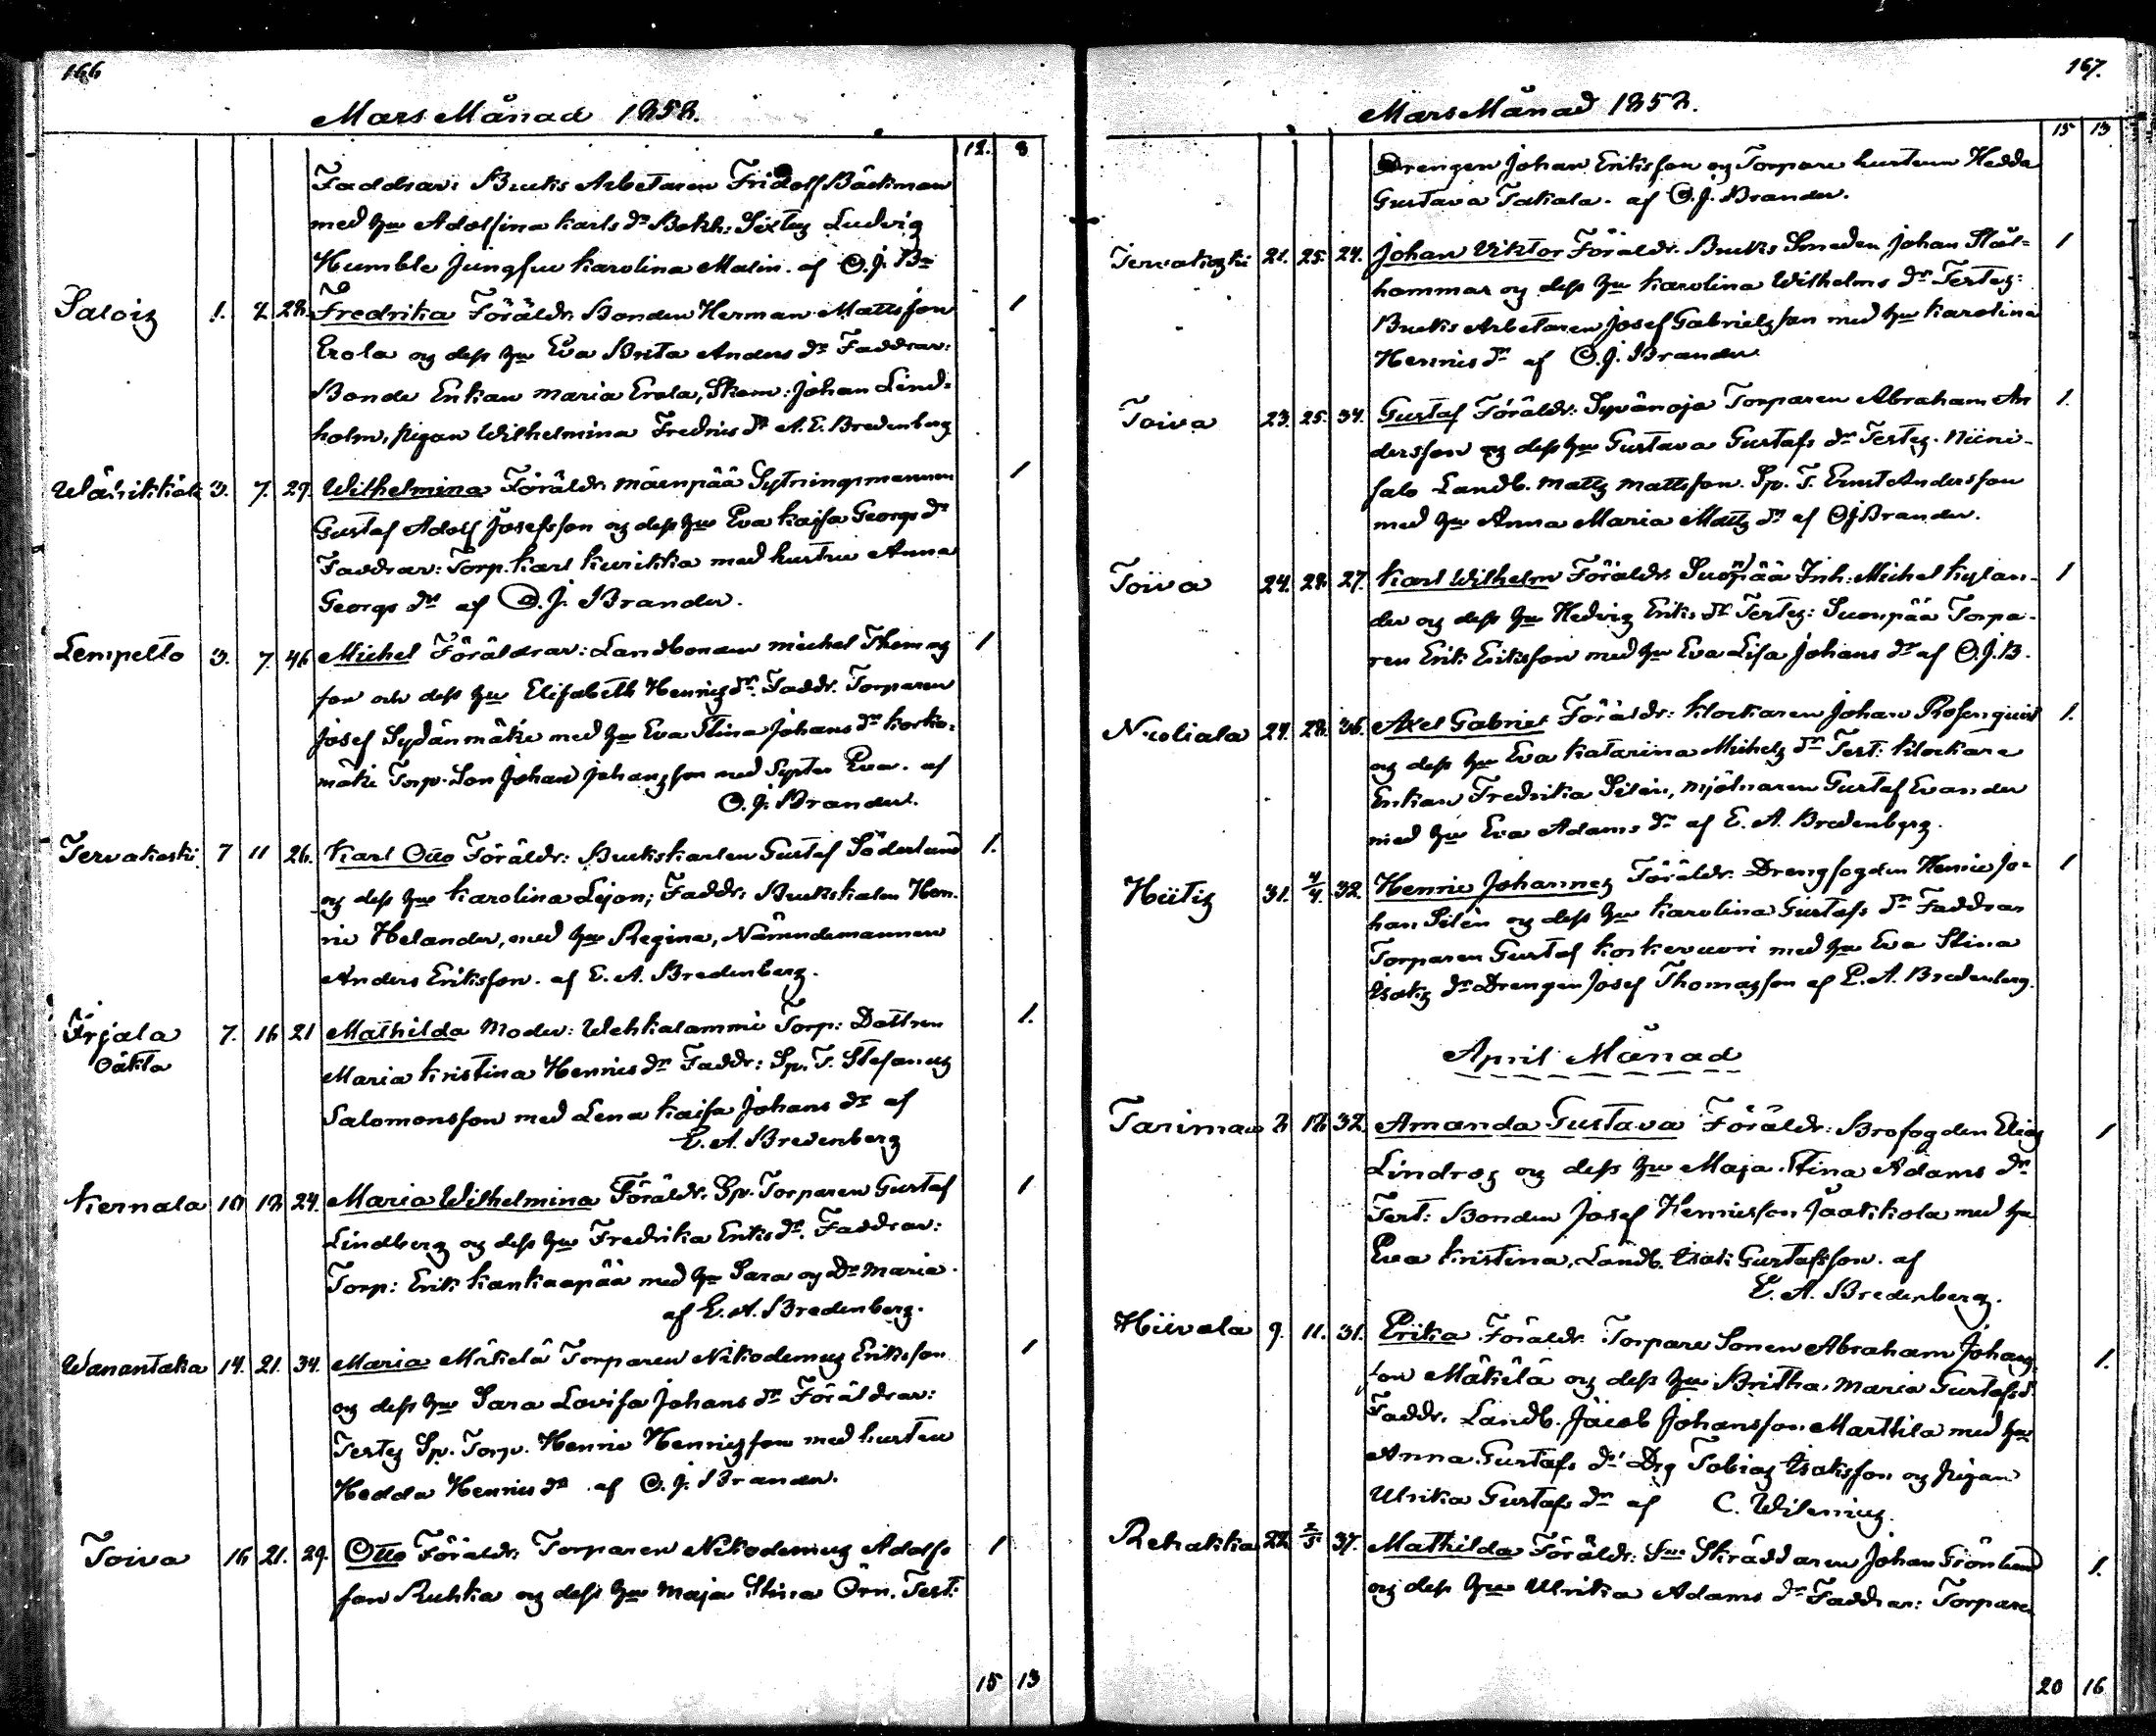 166
Mars Månad 1858.
12. 8
Faddrar: Bruks Arbetaren Fridolf Bäckman
med hu Adolfina Karls dr Bokh: Sixtus Ludvig
Humble Jungfru Karolina Malin. af O. J. Br
Saloiz 1. 7. 28. Fredrika Föräldr. Bonden Herman Mattsson 1
Erola og dess hu Eva Brita Anders dr Faddrar:
Bonde Enkan Maria Erola, Skom: Johan Lind-
holm, pigan Wilhelmina Fredriks dr A. E. Bredenberg
3. 7. 29. Wilhelmina Föräldr. Mäenpää Sytningsmannen 1
Gustaf Adolf Josefsson og dess hu Eva Kajsa Georgs dr
Faddrar: Torp. Karl Kurikka med hustru Anna
Georgs dr af O. J. Brander.
Lempelto 3. 7. 46 Michel Föräldrar: Landbonden Michel Thomas 1
son och dess hu Elisabeth Henrigs dr. Faddr. Torparen
Josef Sydänmäki med hu Eva Stina Johans dr Korko-
mäki Torp. Son Johan Johansson med Syster Eva. af
O. J. Brander.
Tervakoski 7 11 26. Karl Otto Föräldr: Brukskarlen Gustaf Söderlund 1.
og dess hu Karolina Lejon; Faddr: Brukskarlen Hen-
ric Helander, med hu Regina, Nämndemannen
Anders Eriksson. af E. A. Bredenberg.
Ärjala 7. 16 21 Mathilda Moder: Wehkalammi Torp: Dottren 1.
Oäkta Maria Kristina Henrics dr Faddr: Sp. T. Stefanus
Salomonsson med Lena Kajsa Johans dr af
E. A. Bredenberg
Kernala 10 12 24. Maria Wilhelmina Föräldr. Sp. Torparen Gustaf 1
Lindberg og dess hu Fredrika Eriks dr. Faddrar:
Torp: Erik Kankaapää med hu Sara og Dr Maria.
af E. A. Bredenberg.
Wanantaka 14. 21. 34. Maria Mäkelä Torparen Nikodemus Eriksson 1
og dess hu Sara Lovisa Johans dr Föräldrar:
Testes Sp. Torp. Henric Henrigsson med hustru
Hedda Henrics dr af O. J. Brander.
Toiva 16 21. 29. Otto Föräldr: Torparen Nikodemus Adolfs 1
son Ruhka og dess hu Maja Stina Örn. Test:
15 13
167.
Mars Månad 1858.
15 13
Drengen Johan Eriksson og Torpare hustrun Hedda
Gustava Takala. af O. J. Brander.
Tervakoski 21. 25. 24. Johan Viktor Föräldr. Bruks Smeden Johan Stål- 1
hammar og dess hu Karolina Wilhelms dr Testes:
Bruks Arbetaren Josef Gabrielsson med hu Karolina
Henrics dr af O. J. Brander
Toiva 23. 25. 34. Gustaf Föräldr: Syvänoja Torparen Abraham An 1.
dersson og dess hu Gustava Gustafs dr Testes. Niini-
salo Landb. Matts Mattsson. Sp. T. Ernst Andersson
med hu Anna Maria Matts dr af O J Brander.
Toiva 24. 28. 27. Karl Wilhelm Föräldr. Suonpää Inh: Michel Kylan- 1
der og dess hu Hedvig Eriks dr Testes: Suonpää Torpa-
ren Erik Eriksson med hu Eva Lisa Johans dr af O. J. B.
24. 28. 36. Axel Gabriel Föräldr: Klockaren Johan Rosenqvist 1.
og dess hu Eva Katarina Michels dr Test: Klockare
Enkan Fredrika Silen, Mjölnaren Gustaf Evander
med hu Eva Adams dr af E. A. Bredenberg.
31. 4/4. 32. Henric Johannes Föräldr. Drengfogden Henric Jo- 1
han Silén og dess hu Karolina Gustafs dr Faddrar
Torparen Gustaf Koskervuori med hu Eva Stina
Isaks dr Drengen Josef Thomasson af E. A. Bredenberg.
April Månad
2 12 32. Amanda Gustava Föräldr: Brofogden Elias 1
Lindroz og dess hu Maja Stina Adams dr
Test: Bonden Josef Henricsson Jaakkola med hu
Eva Kristina, Landb. Isak Gustafsson. af
E. A. Bredenberg.
Hiivola 9. 11. 31. Erika Föräldr. Torpare Sonen Abraham Johans 1.
son Mäkilä og dess hu Britha Maria Gustafs d.
Faddr. Landb. Jacob Johansson Marttila med hu
Anna Gustafs dr Drg Tobias Isaksson og pigan
Ulrika Gustafs dr af C. Wilenius.
Rehakka 22 2/5 37. Mathilda Föräldr: Skräddaren Johan Grönlund 1.
og dess hu Ulrika Adams dr Faddrar: Torpare
20 16